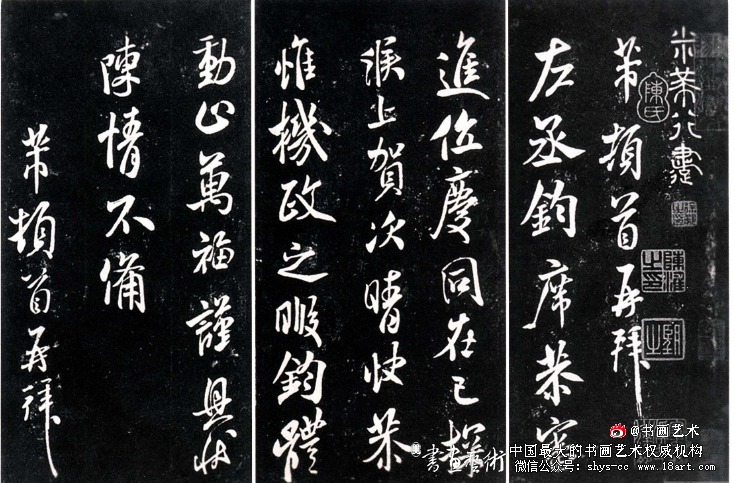 米芾行書
陳氏
芾頓首再拜
左丞鈞席恭審
進位慶同在已
候上賀次晴快恭
惟機政之暇鈞體
動止萬福謹具狀
陳情不備
芾頓首再拜
@书画艺术
書畫藝術
中国最大的书画艺术权威机构
微信公众号：shys-cc www.18art.com